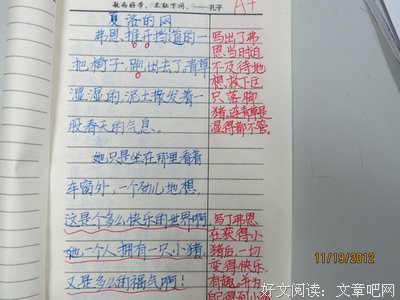 敏而好学,不耻下问。——孔子
A+
夏洛的网
弗恩推开挡道的一
把椅子跑出去了。青草
湿湿的,泥土散发着一
股春天的气息。
她只是坐在那里看着
车窗外,一个劲儿地想,
这是个多么快乐的世界啊,
她一个人拥有一只小猪
又是多么的福气啊!
写出了弗
恩当时迫
不及待地
想救下
只落脚
猪,连青草是
湿得都不管。
写了弗恩
在获得小
猪后,一切
变得快乐,
有趣
11/19/2012
好文阅读:文章吧网